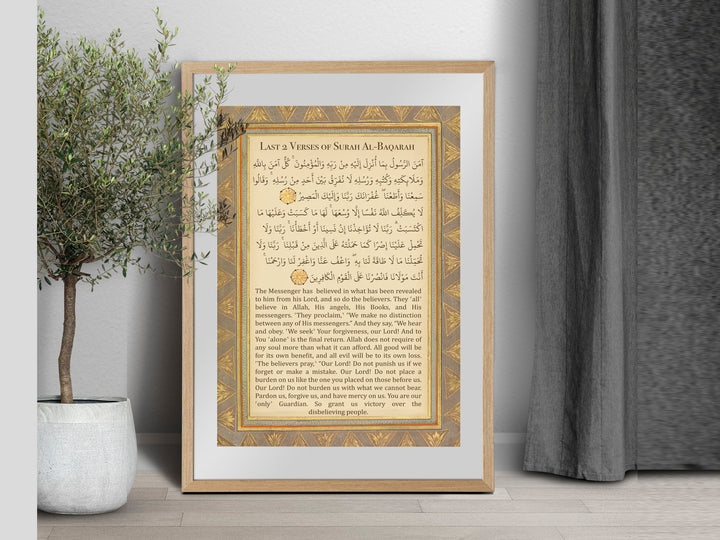 Last 2 Verses of Surah Al-Baqarah
آمَنَ الرَّسُولُ بِمَا أُنْزِلَ إِلَيْهِ مِنْ رَبِّهِ وَالْمُؤْمِنُونَ ۚ كُلٌّ آمَنَ بِاللَّهِ
وَمَلَائِكَتِهِ وَكُتُبِهِ وَرُسُلِهِ لَا نُفَرِّقُ بَيْنَ أَحَدٍ مِنْ رُسُلِهِ ۚ وَقَالُوا
سَمِعْنَا وَأَطَعْنَا ۖ غُفْرَانَكَ رَبَّنَا وَإِلَيْكَ الْمَصِيرُ
لَا يُكَلِّفُ اللَّهُ نَفْسًا إِلَّا وُسْعَهَا ۚ لَهَا مَا كَسَبَتْ وَعَلَيْهَا مَا
اكْتَسَبَتْ ۗ رَبَّنَا لَا تُؤَاخِذْنَا إِنْ نَسِينَا أَوْ أَخْطَأْنَا ۚ رَبَّنَا وَلَا
تَحْمِلْ عَلَيْنَا إِصْرًا كَمَا حَمَلْتَهُ عَلَى الَّذِينَ مِنْ قَبْلِنَا ۚ رَبَّنَا وَلَا
تُحَمِّلْنَا مَا لَا طَاقَةَ لَنَا بِهِ ۖ وَاعْفُ عَنَّا وَاغْفِرْ لَنَا وَارْحَمْنَا ۚ
أَنْتَ مَوْلَانَا فَانْصُرْنَا عَلَى الْقَوْمِ الْكَافِرِينَ
The Messenger has believed in what has been revealed
to him from his Lord, and so do the believers. They 'all'
believe in Allah, His angels, His Books, and His
messengers. 'They proclaim,' "We make no distinction
between any of His messengers." And they say, "We hear
and obey. 'We seek' Your forgiveness, our Lord! And to
You 'alone' is the final return. Allah does not require of
any soul more than what it can afford. All good will be
for its own benefit, and all evil will be to its own loss.
'The believers pray,' "Our Lord! Do not punish us if we
forget or make a mistake. Our Lord! Do not place a
burden on us like the one you placed on those before us.
Our Lord! Do not burden us with what we cannot bear.
Pardon us, forgive us, and have mercy on us. You are our
'only' Guardian. So grant us victory over the
disbelieving people.